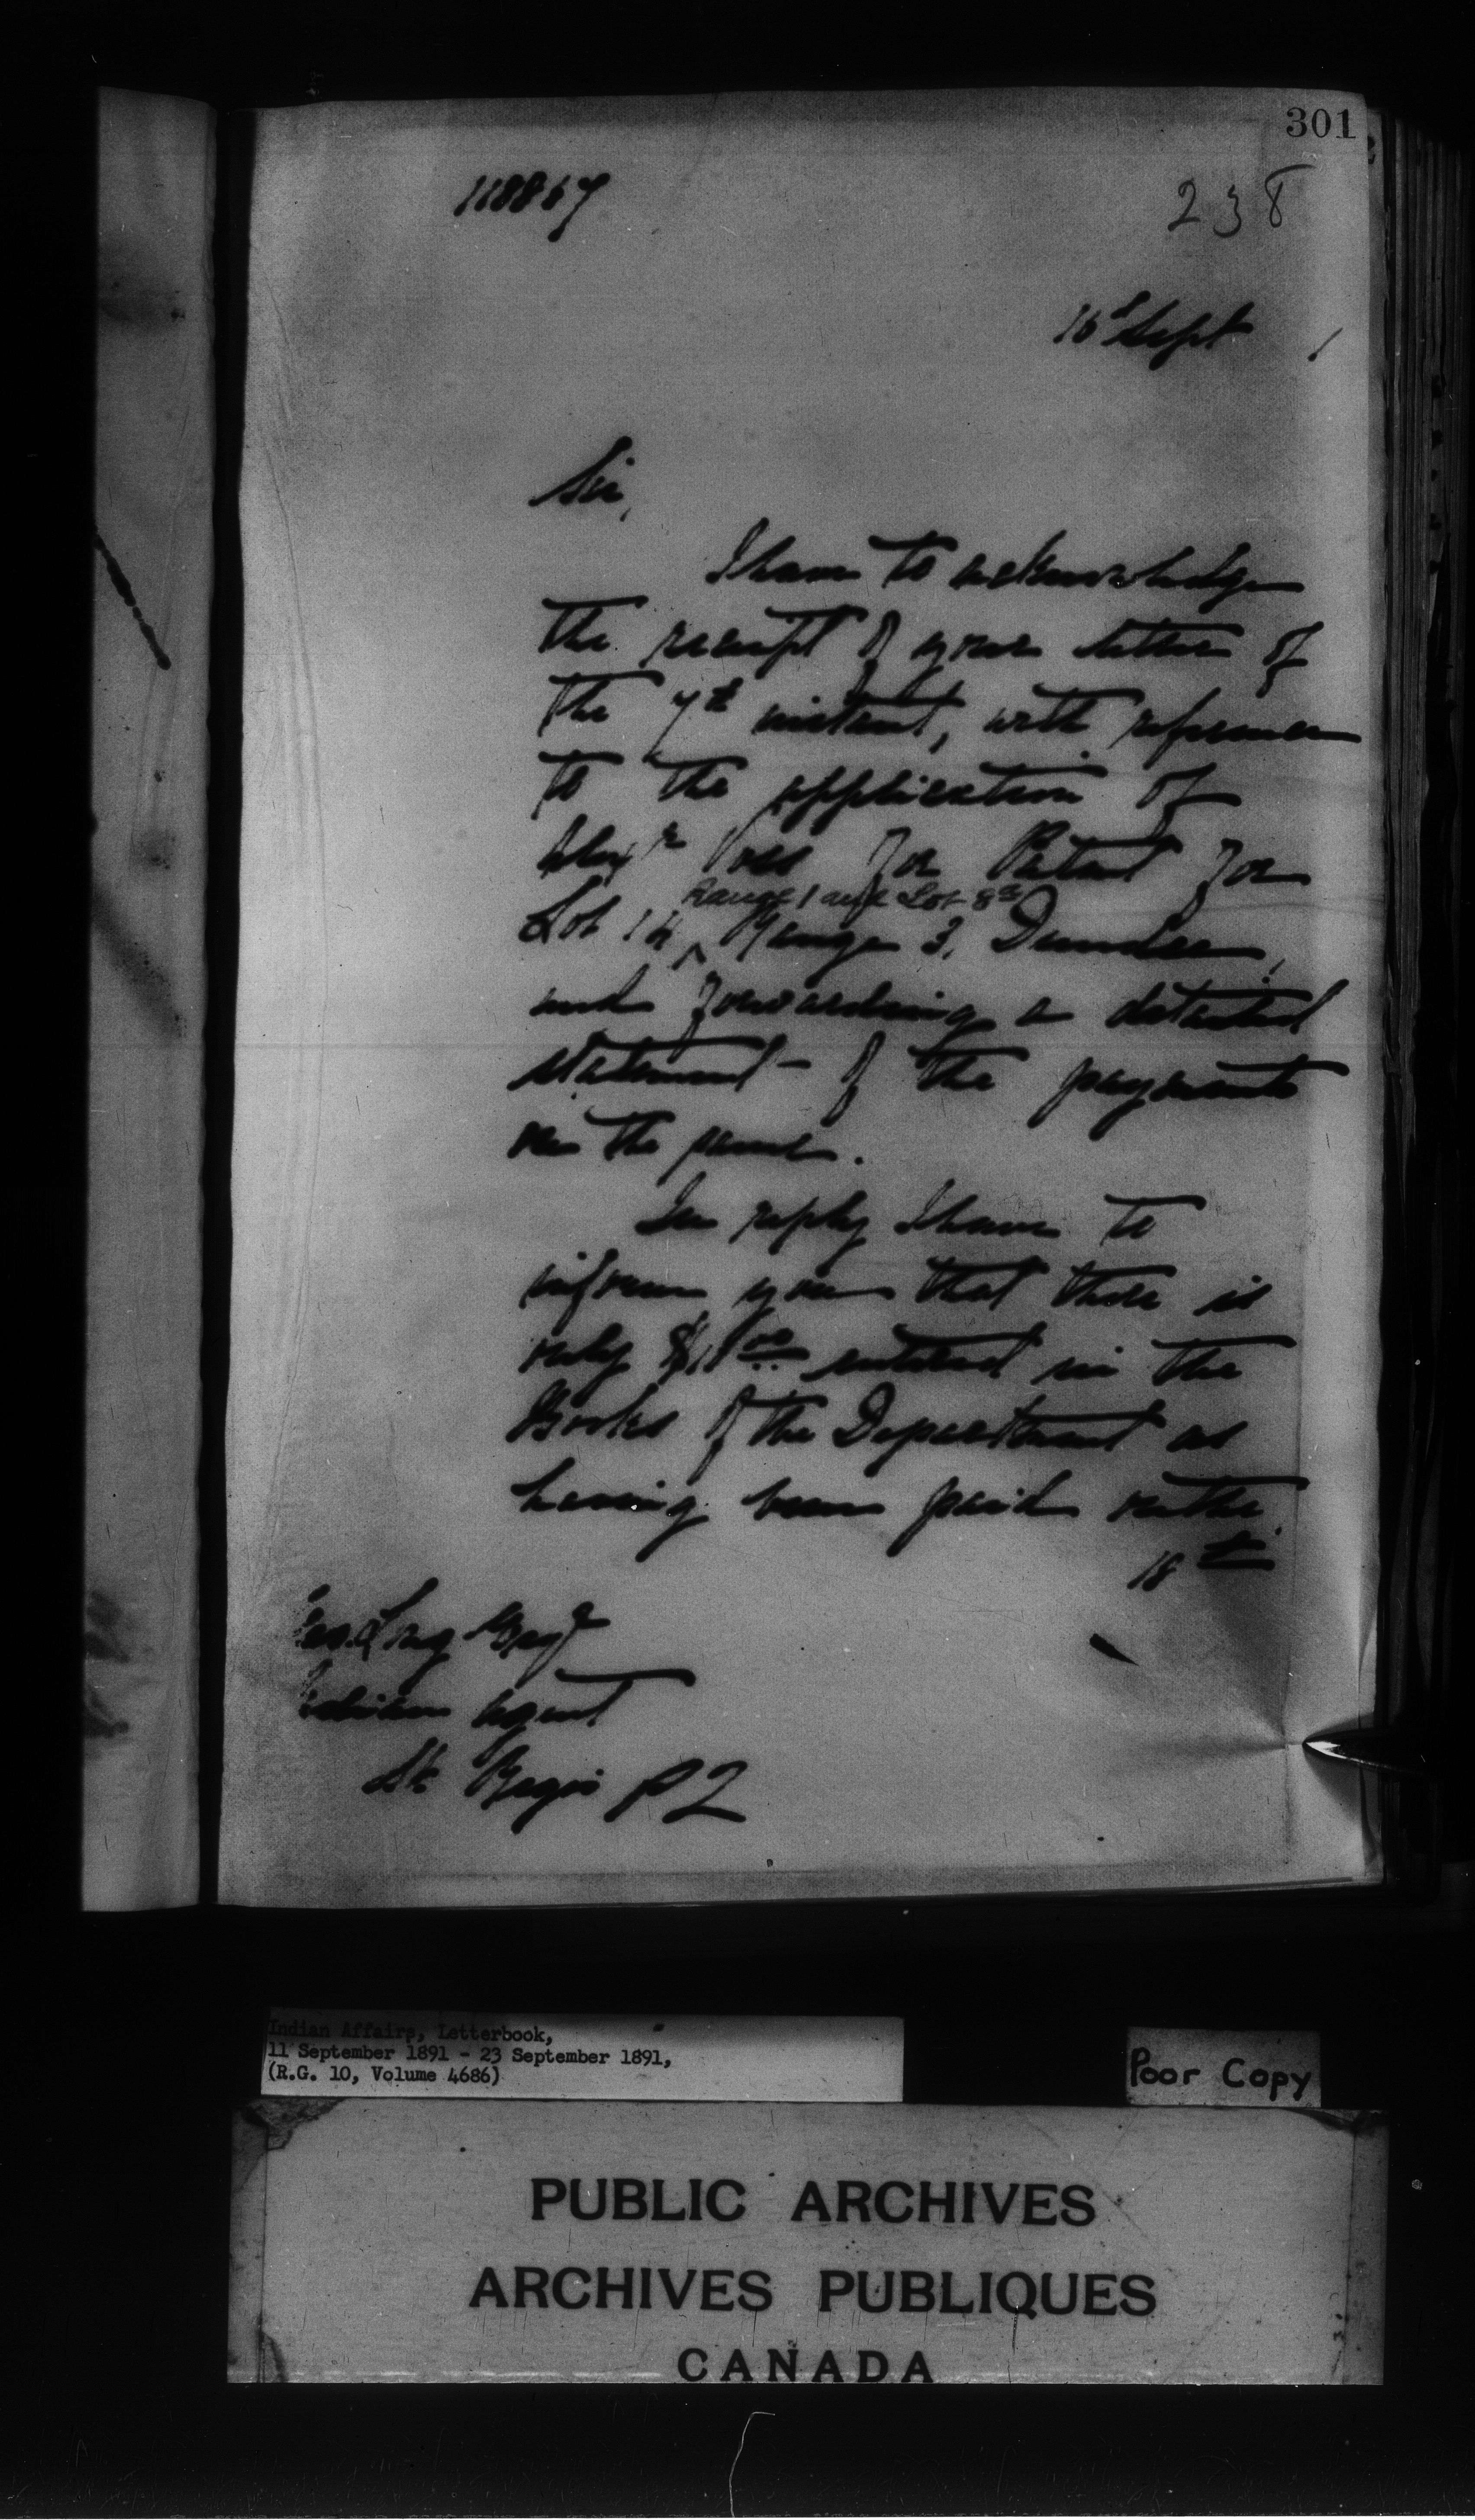 301
118867
238
16th Sept 1
Sir,
I have to acknowledge
the receipt of your letter of
the 7th instant, with reference
to the application of
Alexr for Patent for
Range 1 and Lot 8
Lot 14, Range 3, Dundee,
and forwarding a detailed
statement of the payments
on the same.
In reply I have to
inform you that there is
only entered in the
Books of the Department as
having been paid on the
18th
Geo. Long Esqr
Indian Agent
St. Regis P Q
Indian Affairs, Letterbook,
11 September 1891 - 23 September 1891,
(R.G. 10, Volume 4686)
Poor Copy
PUBLIC ARCHIVES
ARCHIVES PUBLIQUES
CANADA